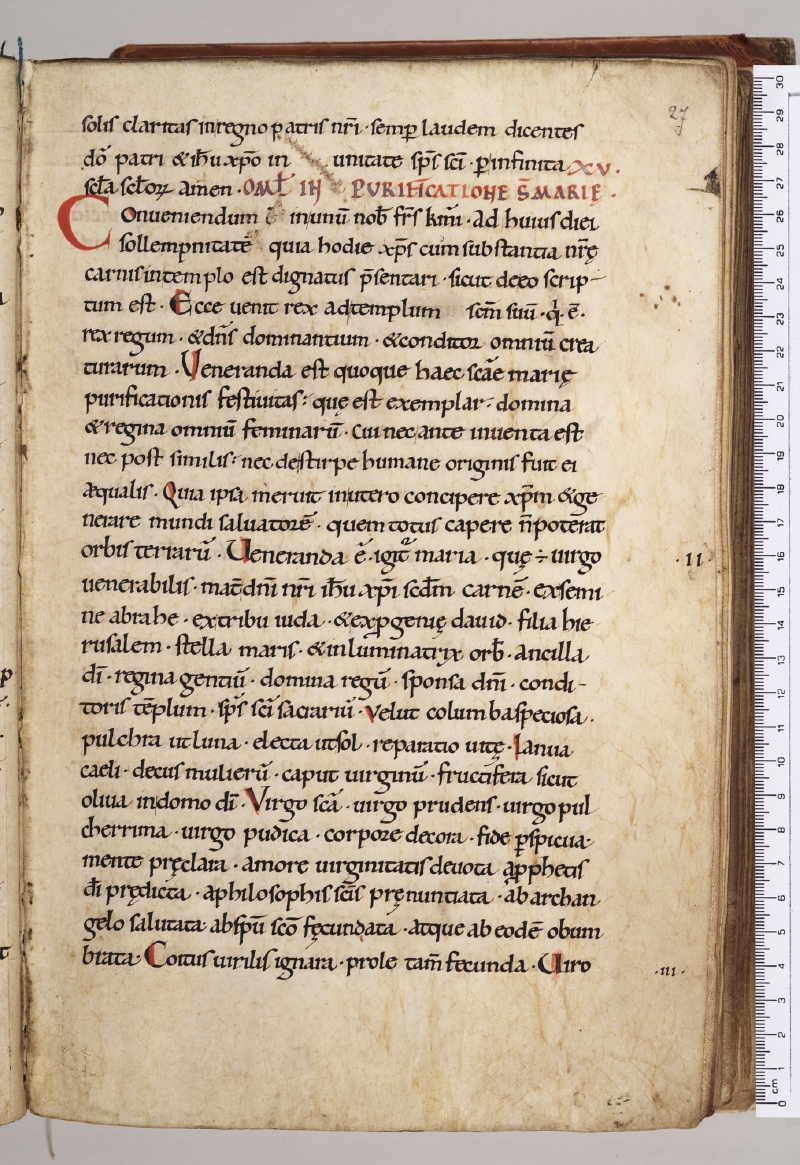 27
solis claritas in regno patris nr̄i · semp̄ laudem dicentes
dō patri &ih̄u xp̄o in unitate sp̄s sc̄i · p̄ infinita XV.
sc̄la sc̄loꝝ amen · OMĒL IN PURIFICATIONE S̄ MARIĘ ·
Conueniendum ē inunū nob̄ fr̄s km̄i · ad huius diei
sollempnitatē quia hodie xp̄s cum substantia nr̄ę
carnis in templo est dignatus p̄sentari · sicut de eo scrip-
tum est · Ecce uenit rex ad templum sc̄m suū · q̇ · ē ·
rex regum · &dn̄s dominantium · &conditor omniū crea
turarum · Ueneranda est quoque haec sc̄ae marię
purificationis festiuitas · quę est exemplar · domina
&regina omniū feminarū · cui nec ante inuenta est
nec post similis · nec de stirpe humane originis fuit ei
æqualis · Quia ipsa meruit in utero concipere xp̄m &ge
nerare mundi saluatorē · quem totus capere n̄ poterat
orbis terrarū · Ueneranda ē · igit̄ maria · quę ÷ uirgo · II ·
uenerabilis · mat̄ dn̄i nr̄i ih̄u xp̄i scd̄m carnē · ex semi
ne abrahe · ex tribu iuda · &ex p̱genię dauid · filia hie
rusalem · stella maris · &inluminatrix orb̄ · ancilla
dī · regina gentiū · domina regū · sponsa dn̄i · condi-
toris tēplum · sp̄s sc̄i sacrariū · velut columba speciosa ·
pulchra ut luna · electa ut sol · reparatio uitę · Ianua
caeli · decus mulierū · caput uirginū · fructifera sicut
oliua in domo dī · Virgo sc̄a · uirgo prudens · uirgo pul
cherrima · uirgo pudica · corpore decora · fide p̱spicua ·
mente pręclara · amore uirginitatis deuota a p̱phetis
dī prędicta · a philosophis sc̄is pręnuntiata · ab archan
gelo salutata · ab sp̄u sc̄o fęcundata · atque ab eodē obum
brata · Coitus uirilis ignara · prole tam̄ fecunda · Uiro · III ·